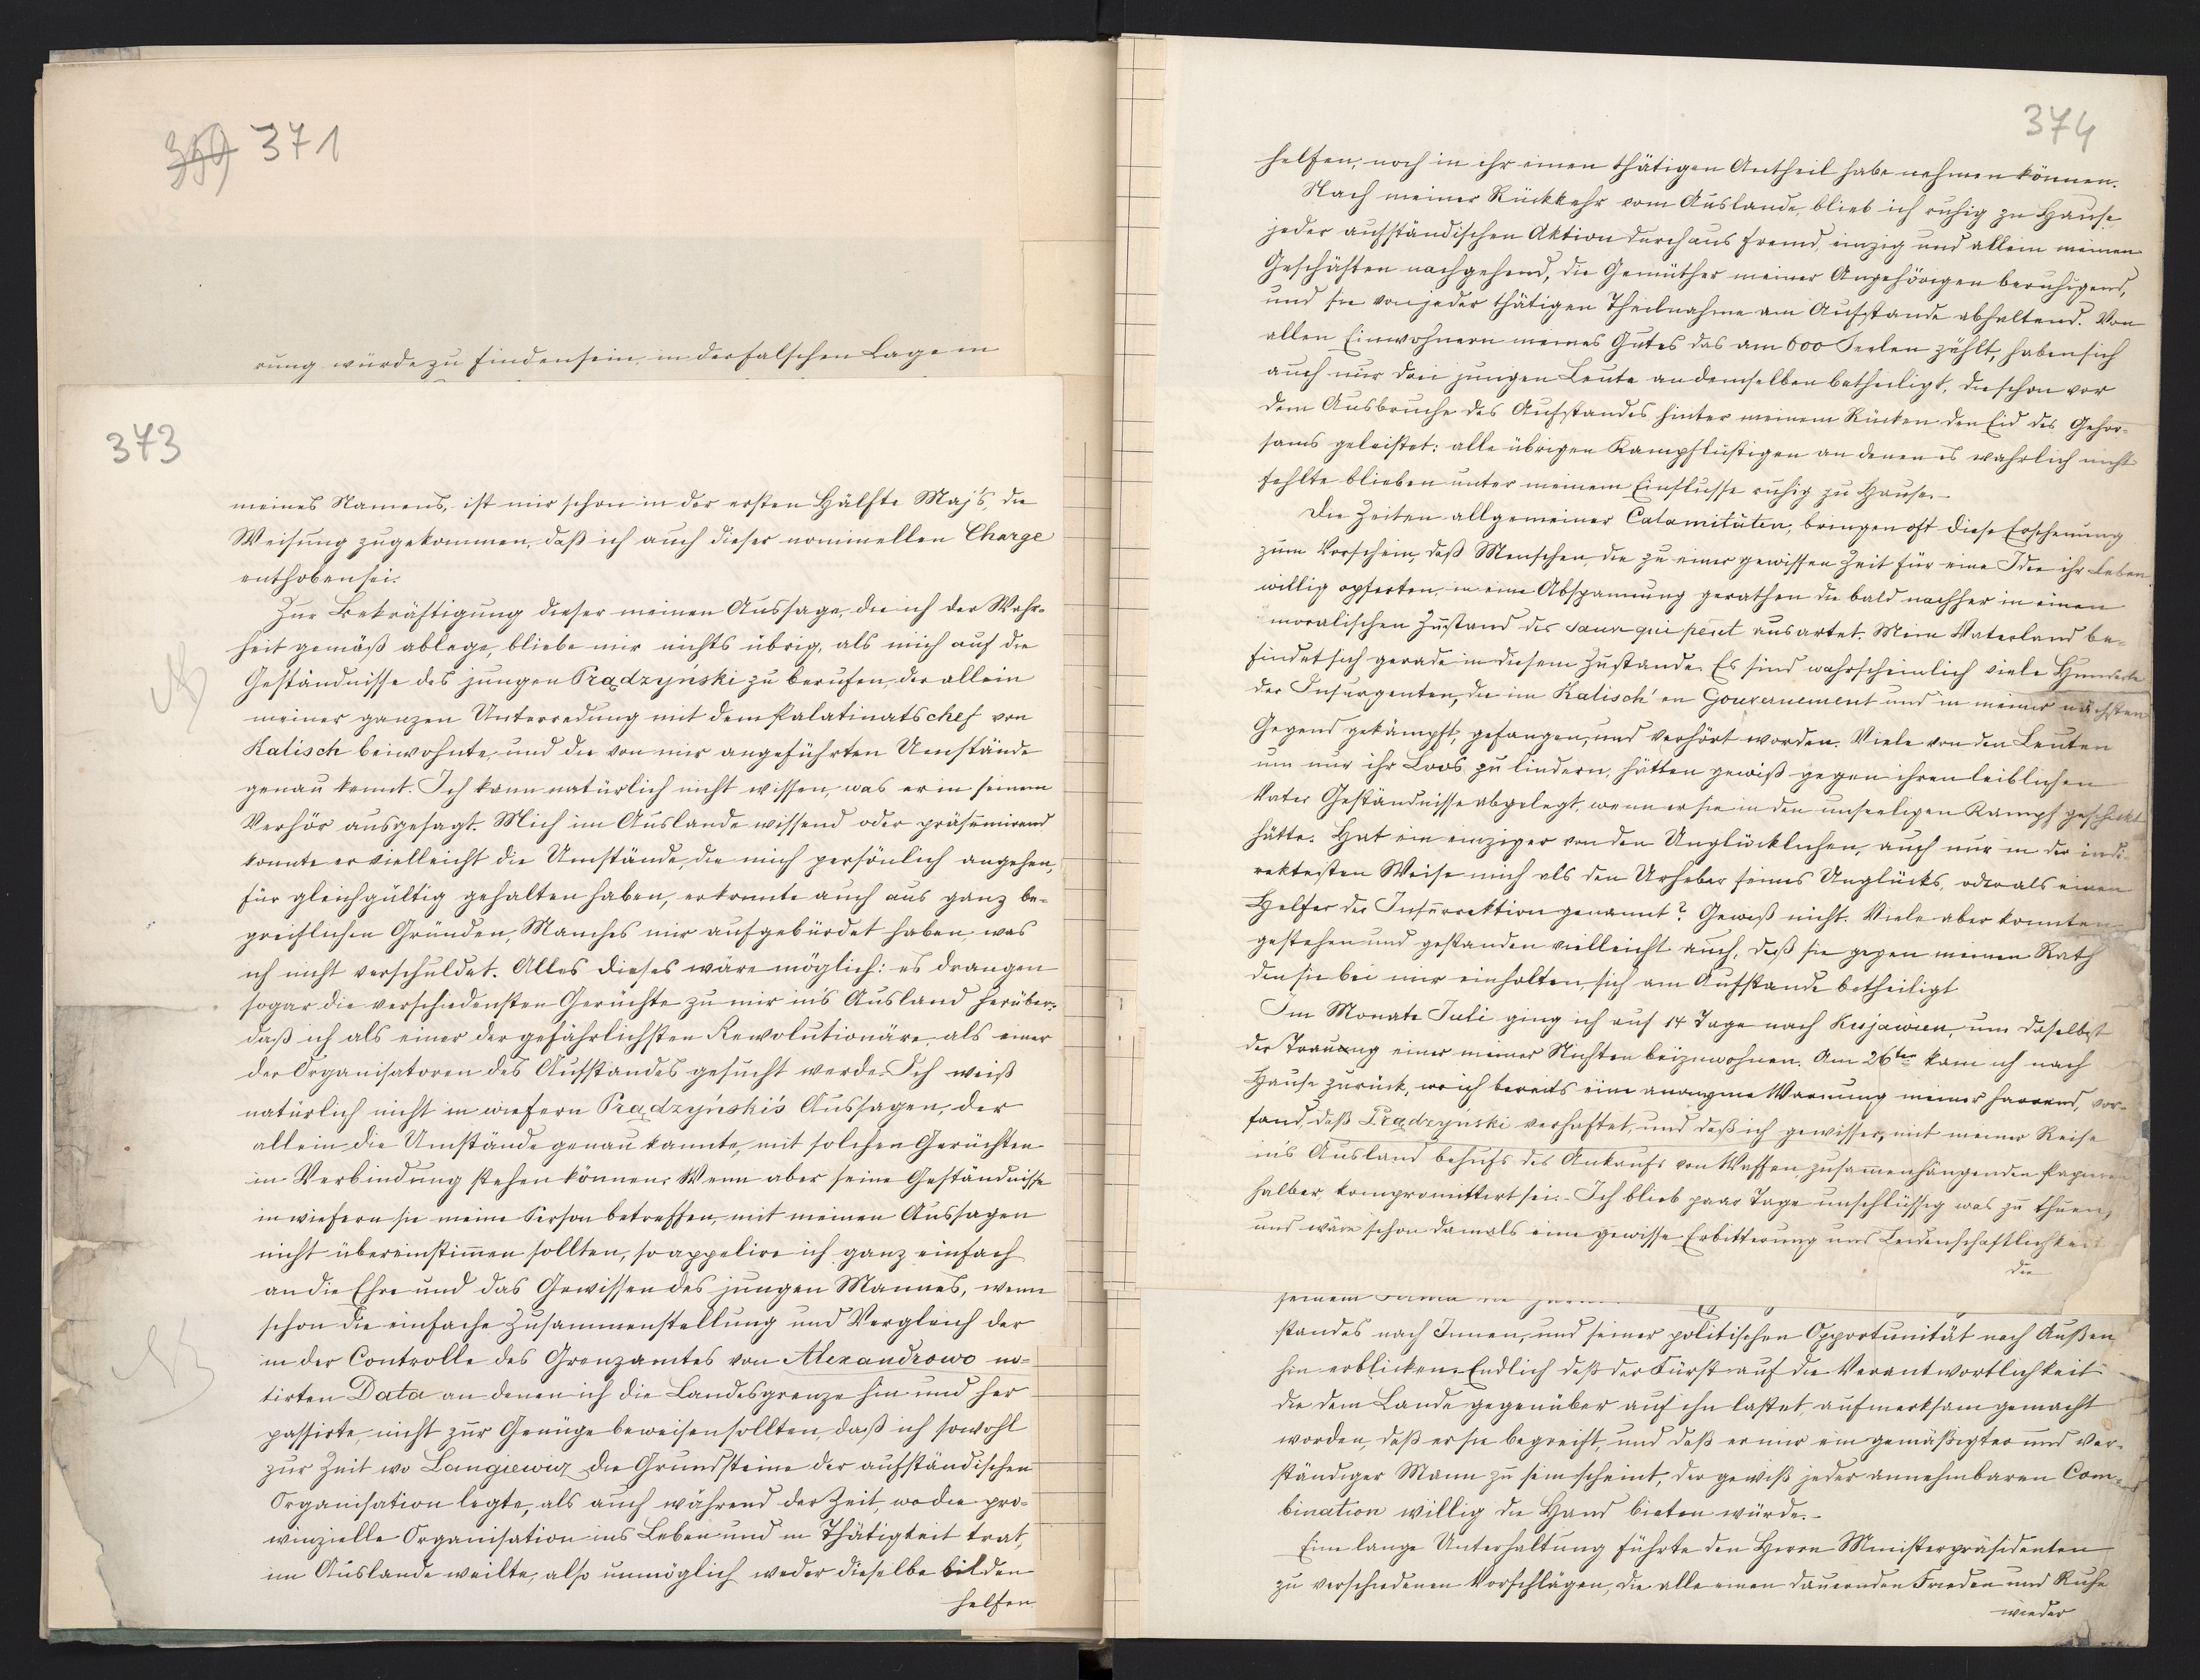 359 371
rung würde zu finden sein, in der falschen Lage in
373
meines Namens, ist mir schon in der ersten Hälfte Maj's, die
Weisung zugekommen, daß ich auch dieser nominellen Charge
enthoben sei.
Zur Bekräftigung dieser meinen Aussage, die ich der Wahr-
heit gemäß ablege, bliebe mir nichts übrig, als mich auf die
Geständnisse des jungen Prądzyński zu berufen, der allein
meiner ganzen Unterredung mit dem Palatinatschef von
Kalisch beiwohnte, und die von mir angeführten Umstände
genau kennt. Ich kann natürlich nicht wissen, was er in seinem
Verhör ausgesagt. Mich im Auslande wissend oder präsumirend
konnte er vielleicht die Umstände, die mich persönlich angehen,
für gleichgültig gehalten haben, er konnte auch aus ganz be-
greiflichen Gründen, Manches mir aufgebürdet haben, was
ich nicht verschuldet. Alles dieses wäre möglich: es drangen
sogar die verschiedensten Gerüchte zu mir ins Ausland herüber:
daß ich als einer der gefährlichsten Rewolutionäre, als einer
der Organisatoren des Aufstandes gesucht werde. Ich weiß
natürlich nicht in wiefern Prądzyński's Aussagen, der
allein die Umstände genau kannte, mit solchen Gerüchten
in Verbindung stehen können. Wenn aber seine Geständnisse
in wiefern sie meine Person betreffen, mit meinen Aussagen
nicht übereinstimen sollten, so appelire ich ganz einfach
an die Ehre und das Gewissen des jungen Mannes, wenn
schon die einfache Zusammenstellung und Vergleich der
in der Controlle des Grenzamtes von Alexandrowo no-
tirten Data an denen ich die Landesgrenze hin und her
passirte, nicht zur Genüge beweisen sollten, daß ich sowohl
zur Zeit wo Langiewicz die Grundsteine der aufständischen
Organisation legte, als auch während der Zeit, wo die pro-
winzielle Organisation ins Leben und in Thätigkeit trat,
im Auslande weilte, also unmöglich weder dieselbe bilden
helfen
374
helfen, noch in ihr einen thätigen Antheil habe nehmen können.
Nach meiner Rückkehr vom Auslande, blieb ich ruhig zu Hause
jeder aufständischen Aktion durchaus fremd, einzig und allein meinen
Geschäften nachgehend, die Gemüther meiner Angehörigen beruhigend,
und sie von jeder thätigen Theilnahme am Aufstande abhaltend. Von
allen Einwohnern meines Gutes das am 600 Seelen zählt, haben sich
auch nur drei jungen Leute an demselben betheiligt, die schon vor
dem Ausbruche des Aufstandes hinter meinem Rücken den Eid des Gehor-
sams geleistet: alle übrigen Kampflustigen an denen es wahrlich nicht
fehlte blieben unter meinem Einflusse ruhig zu Hause.-
Die Zeiten allgemeiner Calamitäten, bringen oft diese Erscheinung
zum Vorschein, daß Menschen die zu einer gewissen Zeit für eine Idee ihr Leben
willig opferten, in eine Abspannung gerathen die bald nachher in einen
moralischen Zustand des sauve qui peut ausartet. Mein Vaterland be-
findet sich gerade in diesem Zustande. Es sind wahrscheinlich viele Hunderte
der Insurgenten, die im Kalisch'en Gouvernement und in meiner nächsten
Gegend gekämpft, gefangen, und verhört worden. Viele von den Leuten
um nur ihr Loos zu lindern, hätten gewiß gegen ihren leiblichen
Vater Geständnisse abgelegt, wenn er sie in den unseeligen Kampf geschickt
hätte. Hat ein einziger von den Unglücklichen, auch nur in der indi-
rektesten Weise mich als den Urheber seines Unglücks, oder als einen
Helfer der Insurrektion genannt? Gewiß nicht. Viele aber konnten
gestehen und gestanden vielleicht auch, daß sie gegen meinen Rath
den sie bei mir einholten, sich am Aufstande betheiligt
Im Monate Juli ging ich auf 14 Tage nach Kujawien, um daselbst
der Trauung einer meiner Nichten beizuwohnen. Am 26ten kam ich nach
Hause zurück, wo ich bereits eine anonyme Warnung meiner harrend, vor-
fand, daß Prądzyński verhaftet, und daß ich gewisser, mit meiner Reise
ins Ausland behufs des Ankaufs von Waffen zusamenhängenden Papieren
halber, kompromittirt sei.- Ich blieb paar Tage unschlüssig was zu thuen,
und wäre schon damals eine gewisse Erbitterung und Leidenschaftlichkeit
die
standes nach Innen, und seiner politischen Opportunität nach Außen
hin erblicken. Endlich daß der Fürst auf die Verantwortlichkeit
die dem Lande gegenüber auf ihn lastet, aufmerksam gemacht
worden, daß er sie begreift, und daß er mir ein gemäßigter und ver-
ständiger Mann zu sein scheint, der gewiß jeder annehmbaren Com-
bination willig die Hand bieten würde.-
Eine lange Unterhaltung führte den Herrn Ministerpräsidenten
zu verschiedenen Vorschlägen, die alle einen dauernden Frieden und Ruhe
wieder